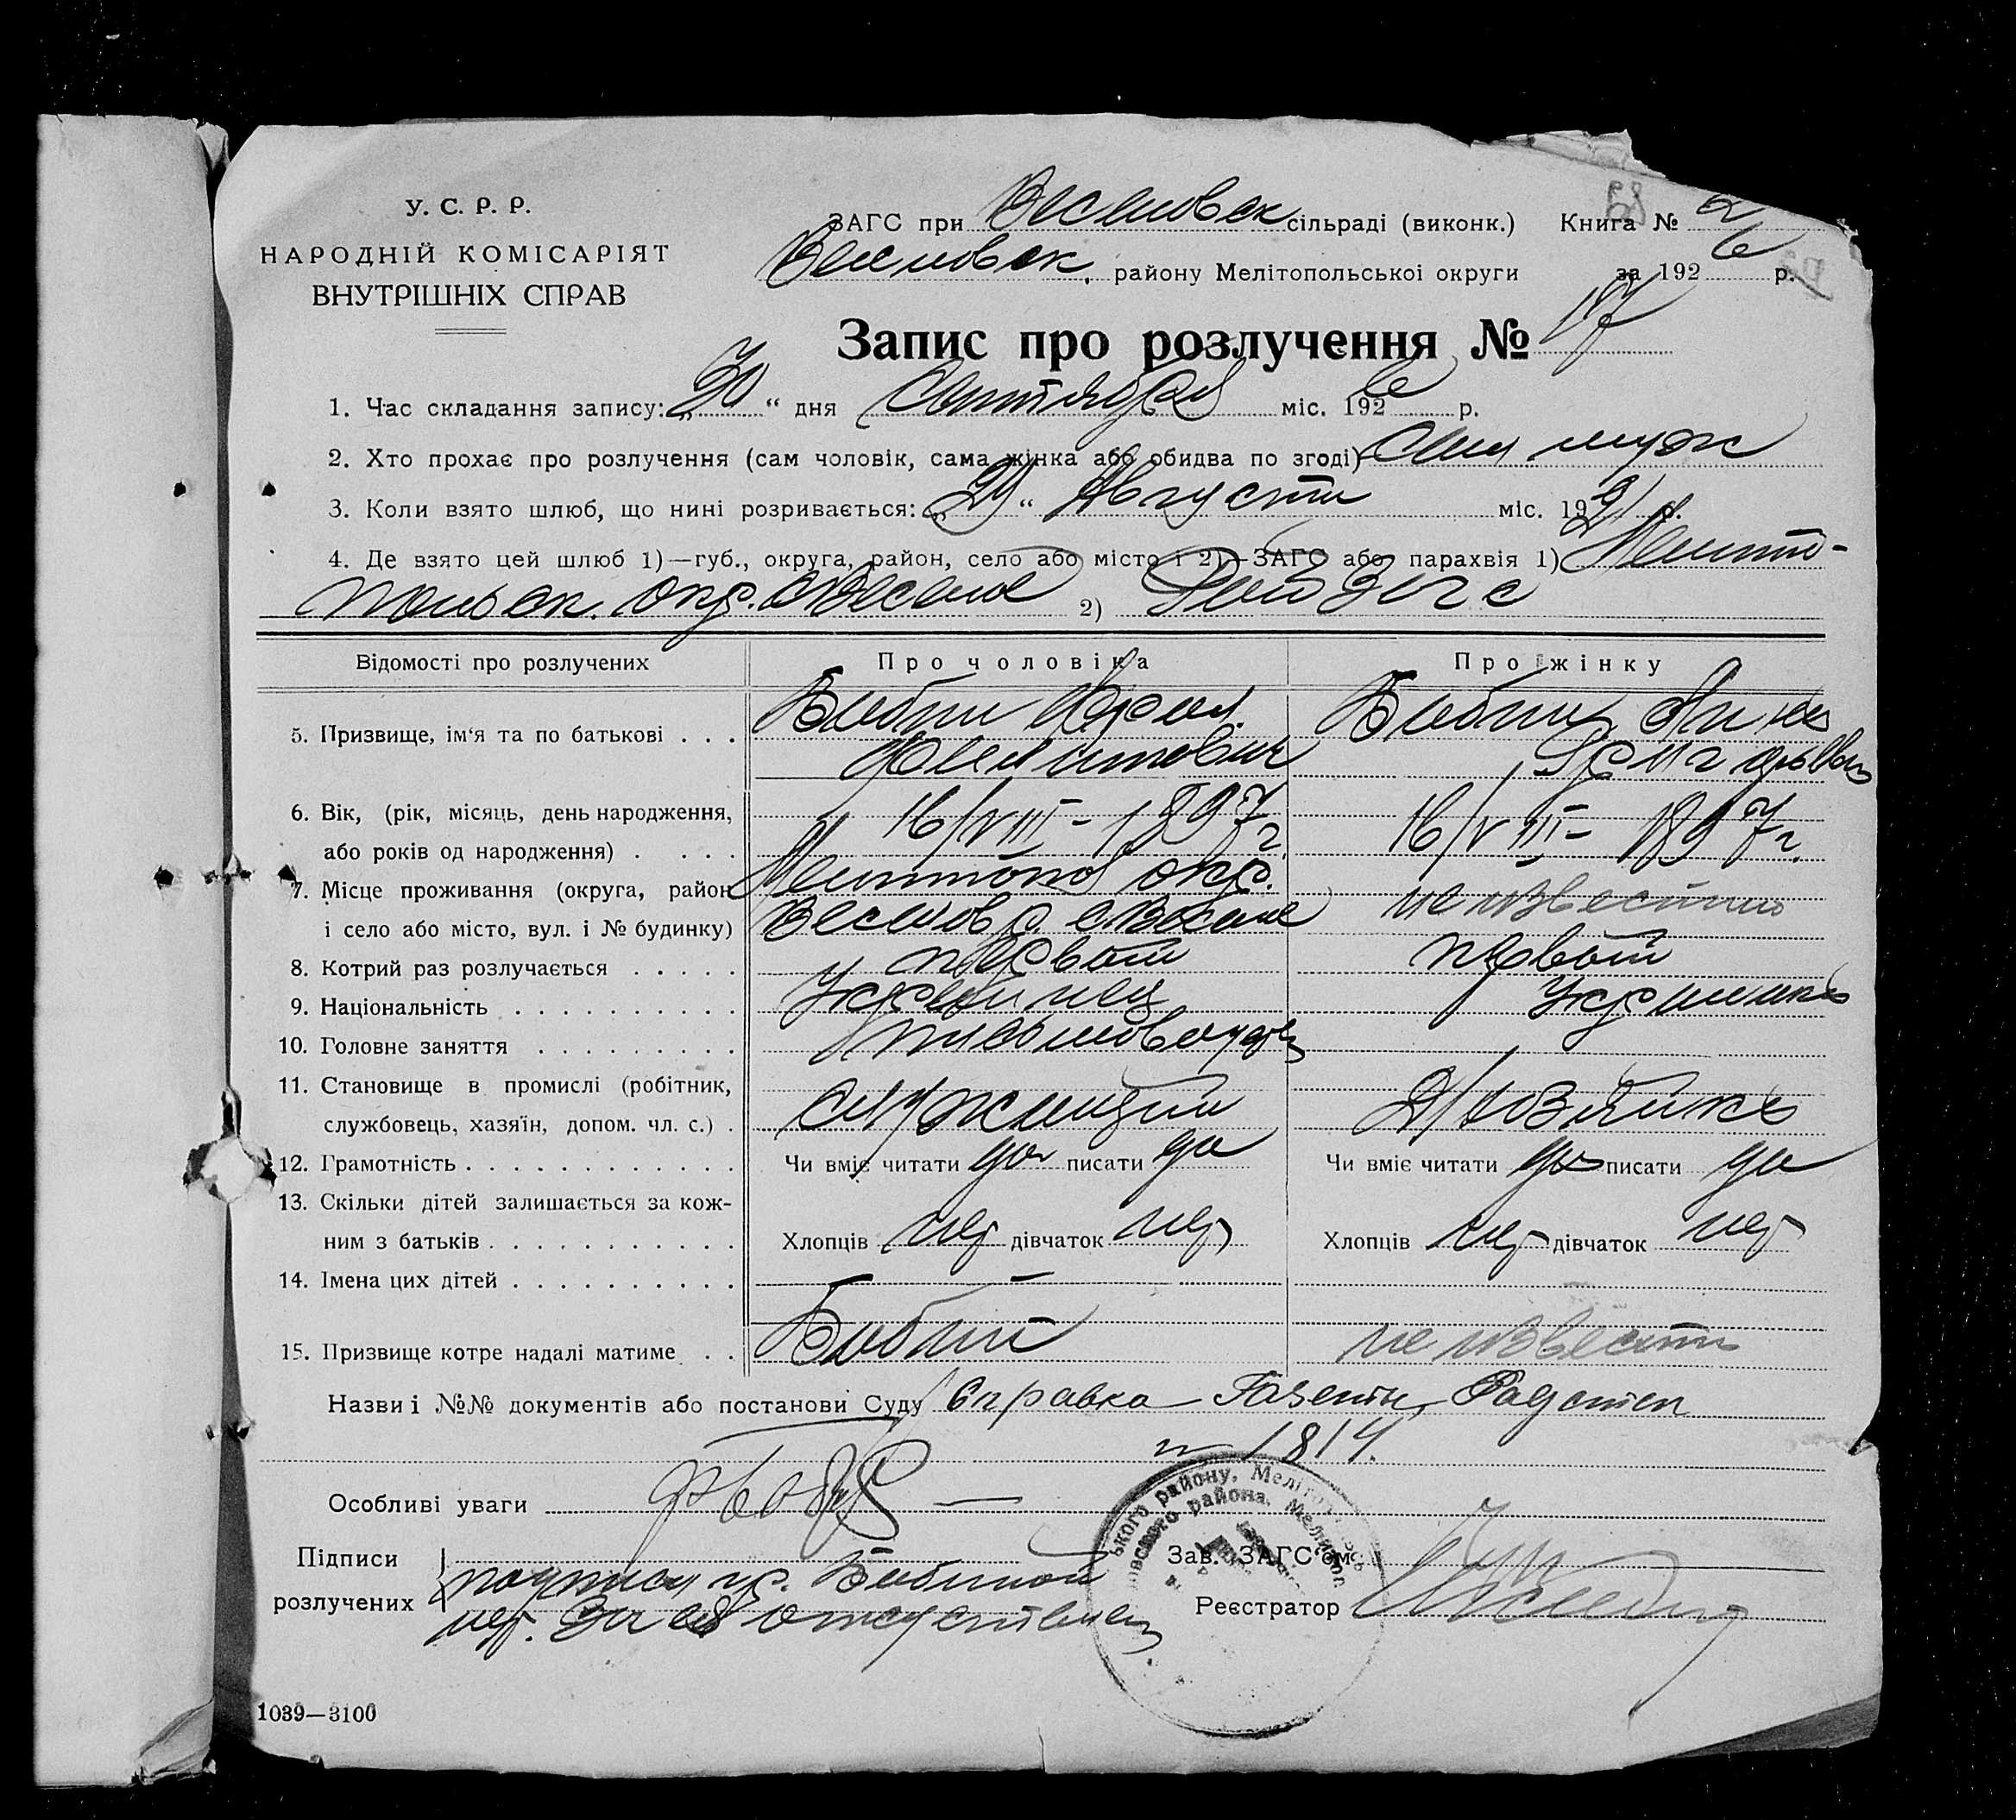 У. С. Р. Р.
НАРОДНІЙ КОМІСАРІЯТ
ВНУТРІШНІХ СПРАВ
ЗАГС при Веселовск сільраді (виконк.) Книга № 2
Веселовск. району Мелітопольської округи за 1926 р.
Запис про розлучення № 17
1. Час складання запису: „30“ дня Сентября міс. 1926 р.
2. Хто прохає про розлучення (сам чоловік, сама жінка або обидва по згоді) Сам муж
3. Коли взято шлюб, що нині розривається: „29“ Августа міс. 1921 р.
4. Де взято цей шлюб 1)—губ., округа, район, село або місто і 2)—ЗАГС або парахвія 1) Мелито-
польск. окр. с Веселое 2) Рай Загс
Відомості про розлучених
Про чоловіка
Про жінку
5. Призвище, ім‘я та по батькові . . .
Бабий
Филиппович
Бабий Анна
6. Вік, (рік, місяць, день народження,
або років од народження) . . . .
16/VIII - 1897 г.
16/VIII - 1897 г.
7. Місце проживання (округа, район
і село або місто, вул. і № будинку)
Мелитопол окр.
Веселов р. с. Веселое
не известно
8. Котрий раз розлучається . . . . .
первый
первый
9. Національність . . . . . . . . . .
Украинец
Украинка
10. Головне заняття . . . . . . . . .
письмоводитель
11. Становище в промислі (робітник,
службовець, хазяїн, допом. чл. с.) .
служащий
Д/хозяйка
12. Грамотність . . . . . . . . . . . .
Чи вміє читати да писати да
Чи вміє читати да писати да
13. Скільки дітей залишається за кож-
ним з батьків . . . . . . . . . . .
Хлопців нет дівчаток нет
Хлопців нет дівчаток нет
14. Імена цих дітей . . . . . . . . . .
15. Призвище котре надалі матиме . .
Бабий
не известно
Назви і №№ документів або постанови Суду Справка Газеты Радстеп
№ 1814.
Особливі уваги —
Підписи
розлучених
подписи гр. Бабиной
нет. За её отсутствием.
Зав. ЗАГС‘ом
Реєстратор
ського району, Меліто
овского района, Мелитоп
1039—3100